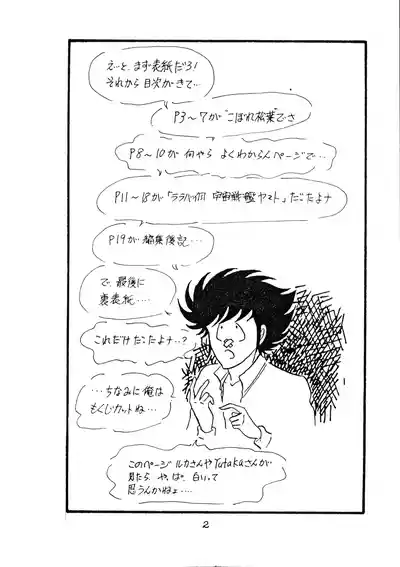 え…と、まず表紙だろ!
それから目次がきて…
P3～7が“こぼれ松葉”でさ
P8～10が 何やら よくわからんページで…
P11～18が「ララバイ 宇宙戦艦ヤマト」だったよナ
P19が編集後記…
で、最後に
裏表紙……
これだけだったよナ…?
…ちなみに俺は
もくじカットね…
このページ ルカさんやYutakaさんが
見たら やっぱ 白いって
思うんかねェ……
2